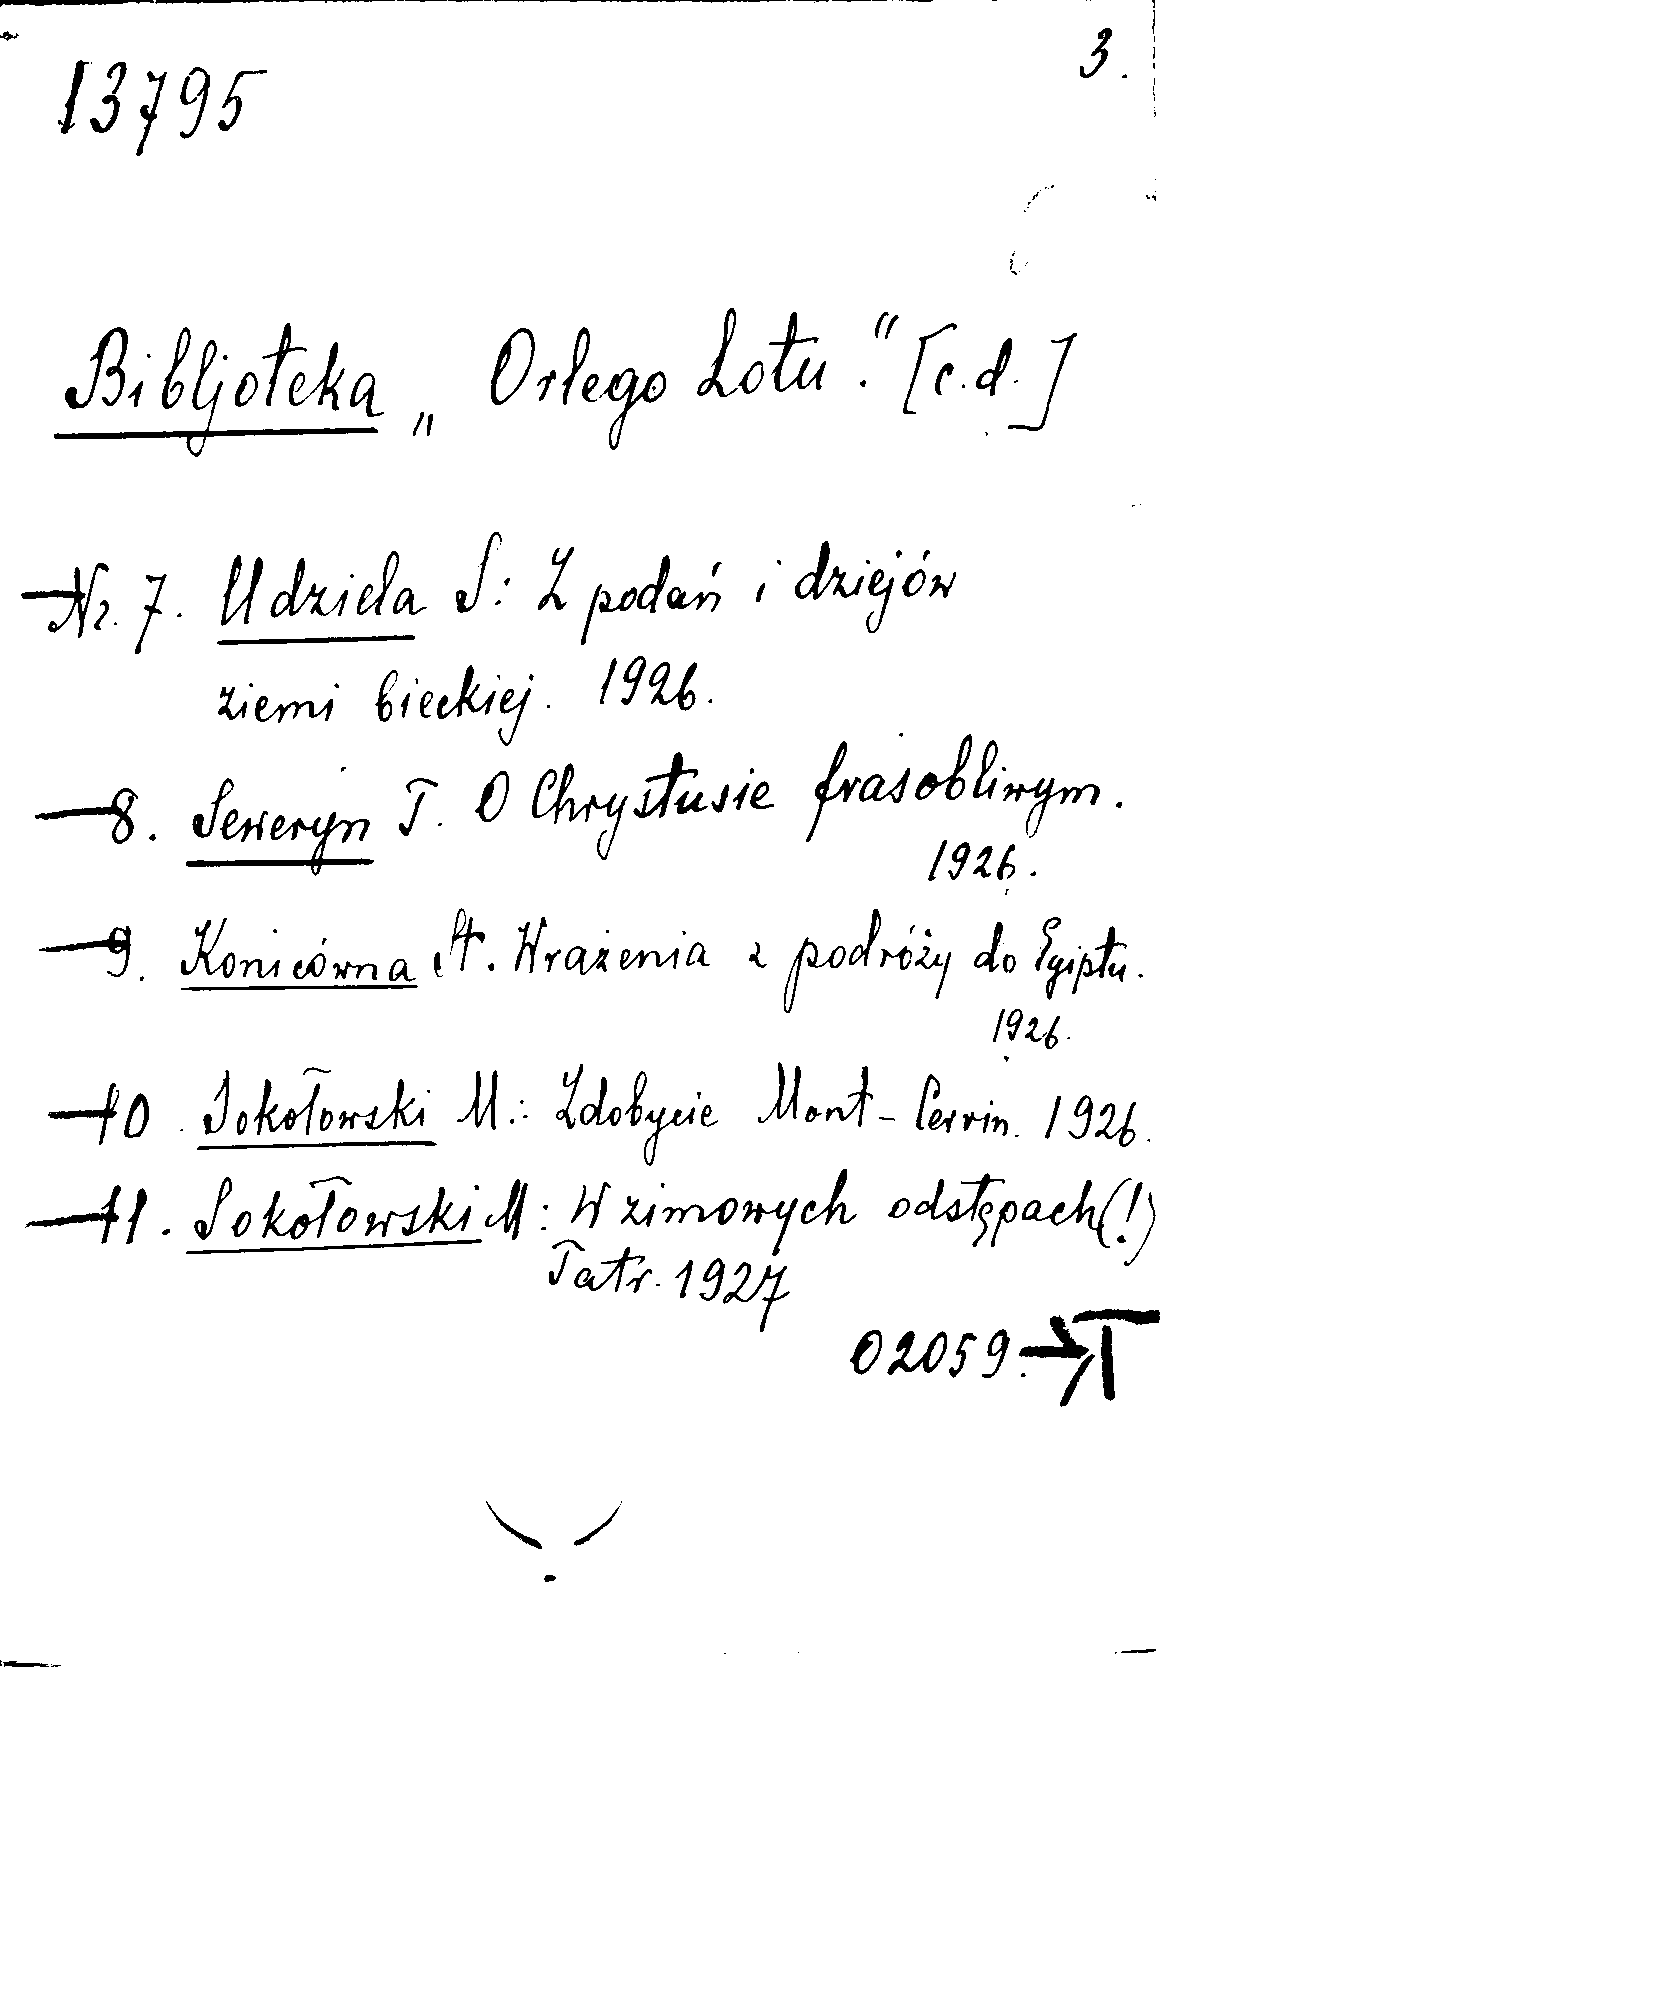 3.
13795
Bibljoteka „Orlego Lotu." [c.d.]
Nr. 7. Udziela S: Z podań i dziejów
ziemi bieckiej. 1926.
8. Seweryn T. O Chrystusie frasobliwym.
1926.
9. Konicówna A. Wrażenia z podróży do Egiptu.
1926.
10. Sokołowski M.: Zdobycie Mont-Cervin. 1926.
11. Sokołowski M: W zimowych odstępach(!)
Tatr. 1927
02059. → T